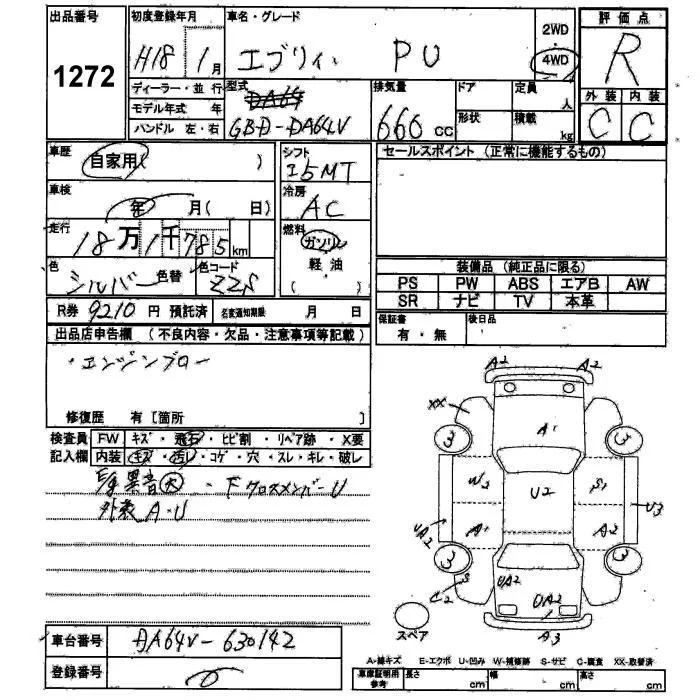 出品番号 1272
初度登録年月 H18 1月
車名・グレード エブリィ PU
2WD 4WD
評価点 R
外装 C 内装 C
ディーラー・並行
モデル年式 年
ハンドル 左・右
型式 DA64 GBD-DA64V
排気量 660 cc
ドア
形状
定員 人
積載 kg
車歴 自家用 )
車検 年 月( 日)
走行 18万1千785km
色 シルバー 色替 色コード Z2S
シフト I5MT
冷房 AC
燃料 ガソリン
軽油
( )
セールスポイント (正常に機能するもの)
装備品 (純正品に限る)
PS PW ABS エアB AW
SR ナビ TV 本革
保証書 有・無
後日品
R券 9210 円 預託済 名変通知期限 月 日
出品店申告欄 (不良内容・欠品・注意事項等記載)
・エンジンブロー
修復歴 有[箇所 ]
検査員 FW キズ・飛石・ヒビ割・リペア跡・X要
記入欄 内装 キズ・汚レ・コゲ・穴・スレ・キレ・破レ
E/g 異音大 ・FクロスメンバーU
外装 A・U
車台番号 DA64V-630142
登録番号
A2 A2
XX
A1
3 3
W2 U2 S1
UA2 A1 A2 U3
3 3
S C2
UA2 UA2
A3
スペア
A-線キズ E-エクボ U-凹み W-補修跡 S-サビ C-腐食 XX-取替済
車庫証明用参考 長さ cm 幅 cm 高さ cm